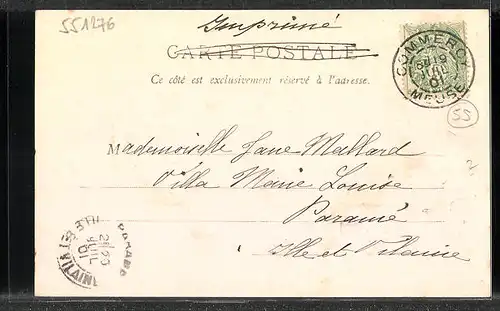 551276
Imprimé
CARTE POSTALE
Ce côté est exclusivement réservé à l'adresse.
COMMERCY
19
JUIL
01
MEUSE
55
Mademoiselle Jane Mallard
Villa Marie Louise
Paramé
Ille et Vilaine
PARAMÉ
20
JUIL
01
ILLE ET VILAINE